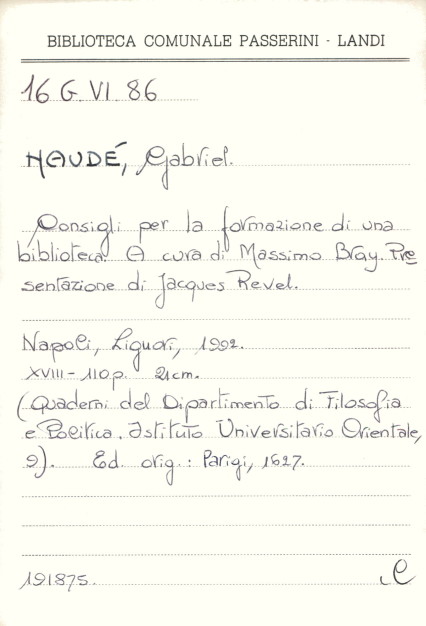 BIBLIOTECA COMUNALE PASSERINI - LANDI
16 G. VI. 86
NAUDÉ, Gabriel.
Consigli per la formazione di una
biblioteca. A cura di Massimo Bray. Pre
sentazione di Jacques Revel.
Napoli, Liguori, 1992.
XVIII - 110 p. 21 cm.
(Quaderni del Dipartimento di Filosofia
e Politica. Istituto Universitario Orientale,
9). Ed. orig.: Parigi, 1627.
191875.